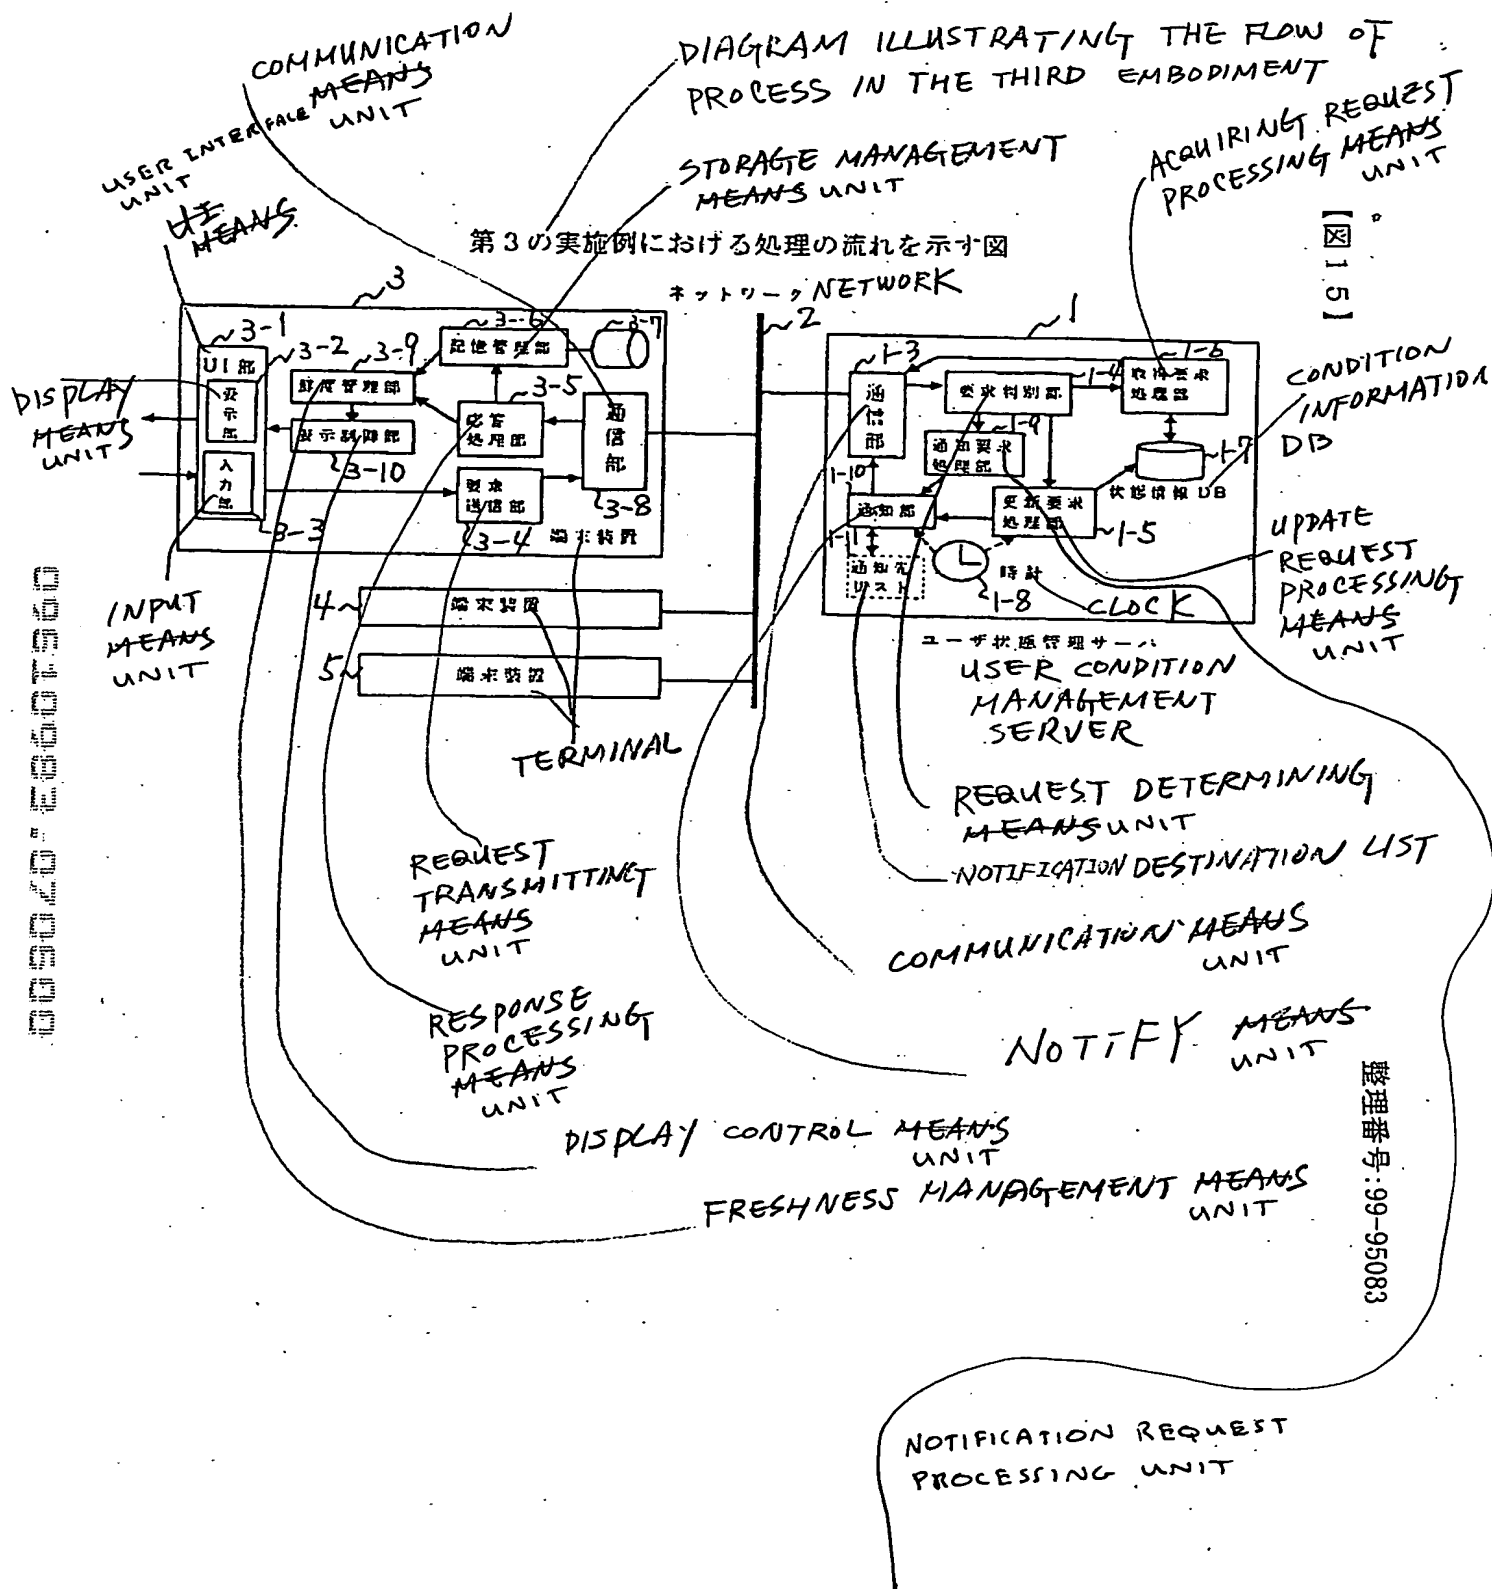 COMMUNICATION
MEANS
UNIT
DIAGRAM ILLUSTRATING THE FLOW OF
PROCESS IN THE THIRD EMBODIMENT
USER INTERFACE
UNIT
UI
MEANS
STORAGE MANAGEMENT
MEANS UNIT
ACQUIRING REQUEST
PROCESSING MEANS
UNIT
第3の実施例における処理の流れを示す図
【図15】
ネットワーク NETWORK
3
2
1
3-1
UI部
3-2
表示部
入力部
3-3
3-9
鮮度管理部
表示制御部
3-10
3-6
記憶管理部
3-7
3-5
応答
処理部
要求
送信部
3-4
通信部
3-8
端末装置
4
端末装置
5
端末装置
1-3
通信部
1-4
要求判別部
1-6
取得要求
処理部
1-9
通知要求
処理部
1-7
状態情報DB
1-10
通知部
更新要求
処理部
1-5
1-11
通知先
リスト
時計
1-8
CLOCK
ユーザ状態管理サーバ
USER CONDITION
MANAGEMENT
SERVER
CONDITION
INFORMATION
DB
DISPLAY
MEANS
UNIT
INPUT
MEANS
UNIT
UPDATE
REQUEST
PROCESSING
MEANS
UNIT
TERMINAL
REQUEST DETERMINING
MEANS UNIT
NOTIFICATION DESTINATION LIST
REQUEST
TRANSMITTING
MEANS
UNIT
COMMUNICATION MEANS
UNIT
RESPONSE
PROCESSING
MEANS
UNIT
NOTIFY MEANS
UNIT
DISPLAY CONTROL MEANS
UNIT
FRESHNESS MANAGEMENT MEANS
UNIT
整理番号:99-95083
NOTIFICATION REQUEST
PROCESSING UNIT